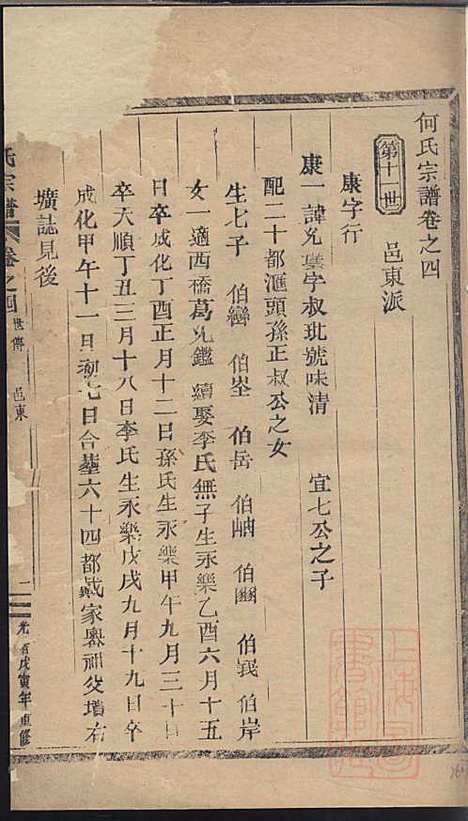 何氏宗譜卷之四
第十一世 邑東派
康字行
康一諱兊字叔玭號味清 宜七公之子
配二十都滙頭孫正叔公之女
生七子 伯巒 伯峚 伯岳 伯崳 伯豳 伯峩 伯岸
女一適西橋葛兊鑑 續娶李氏無子生永樂乙酉六月十五
日卒成化丁酉正月十二日孫氏生永樂甲午九月三十日
卒天順丁丑三月十八日李氏生永樂戊戌九月十九日卒
成化甲午十一日初七日合葬六十四都戚家嶴祖父墳右
壙誌見後
氏宗譜 卷之四 世傳 邑東 一 光緒戊寅年重修